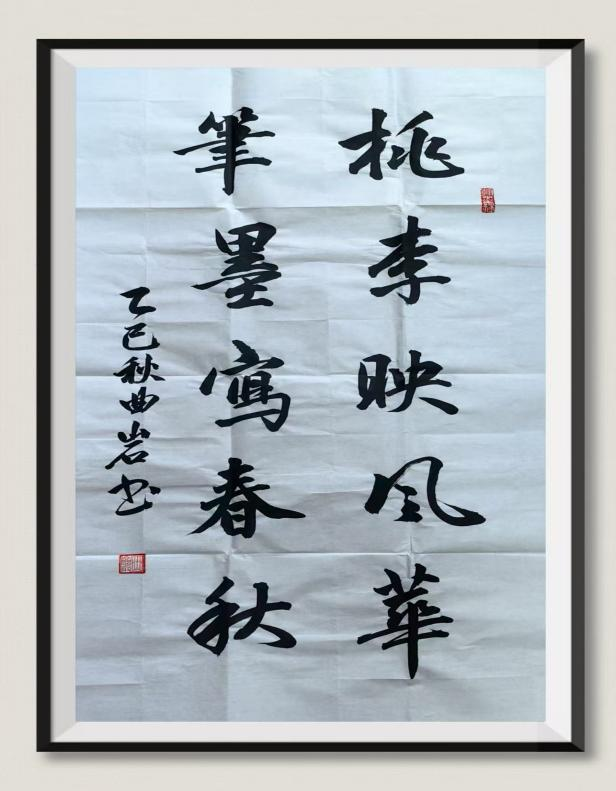 桃李映风華
筆墨寫春秋
乙巳秋曲岩书